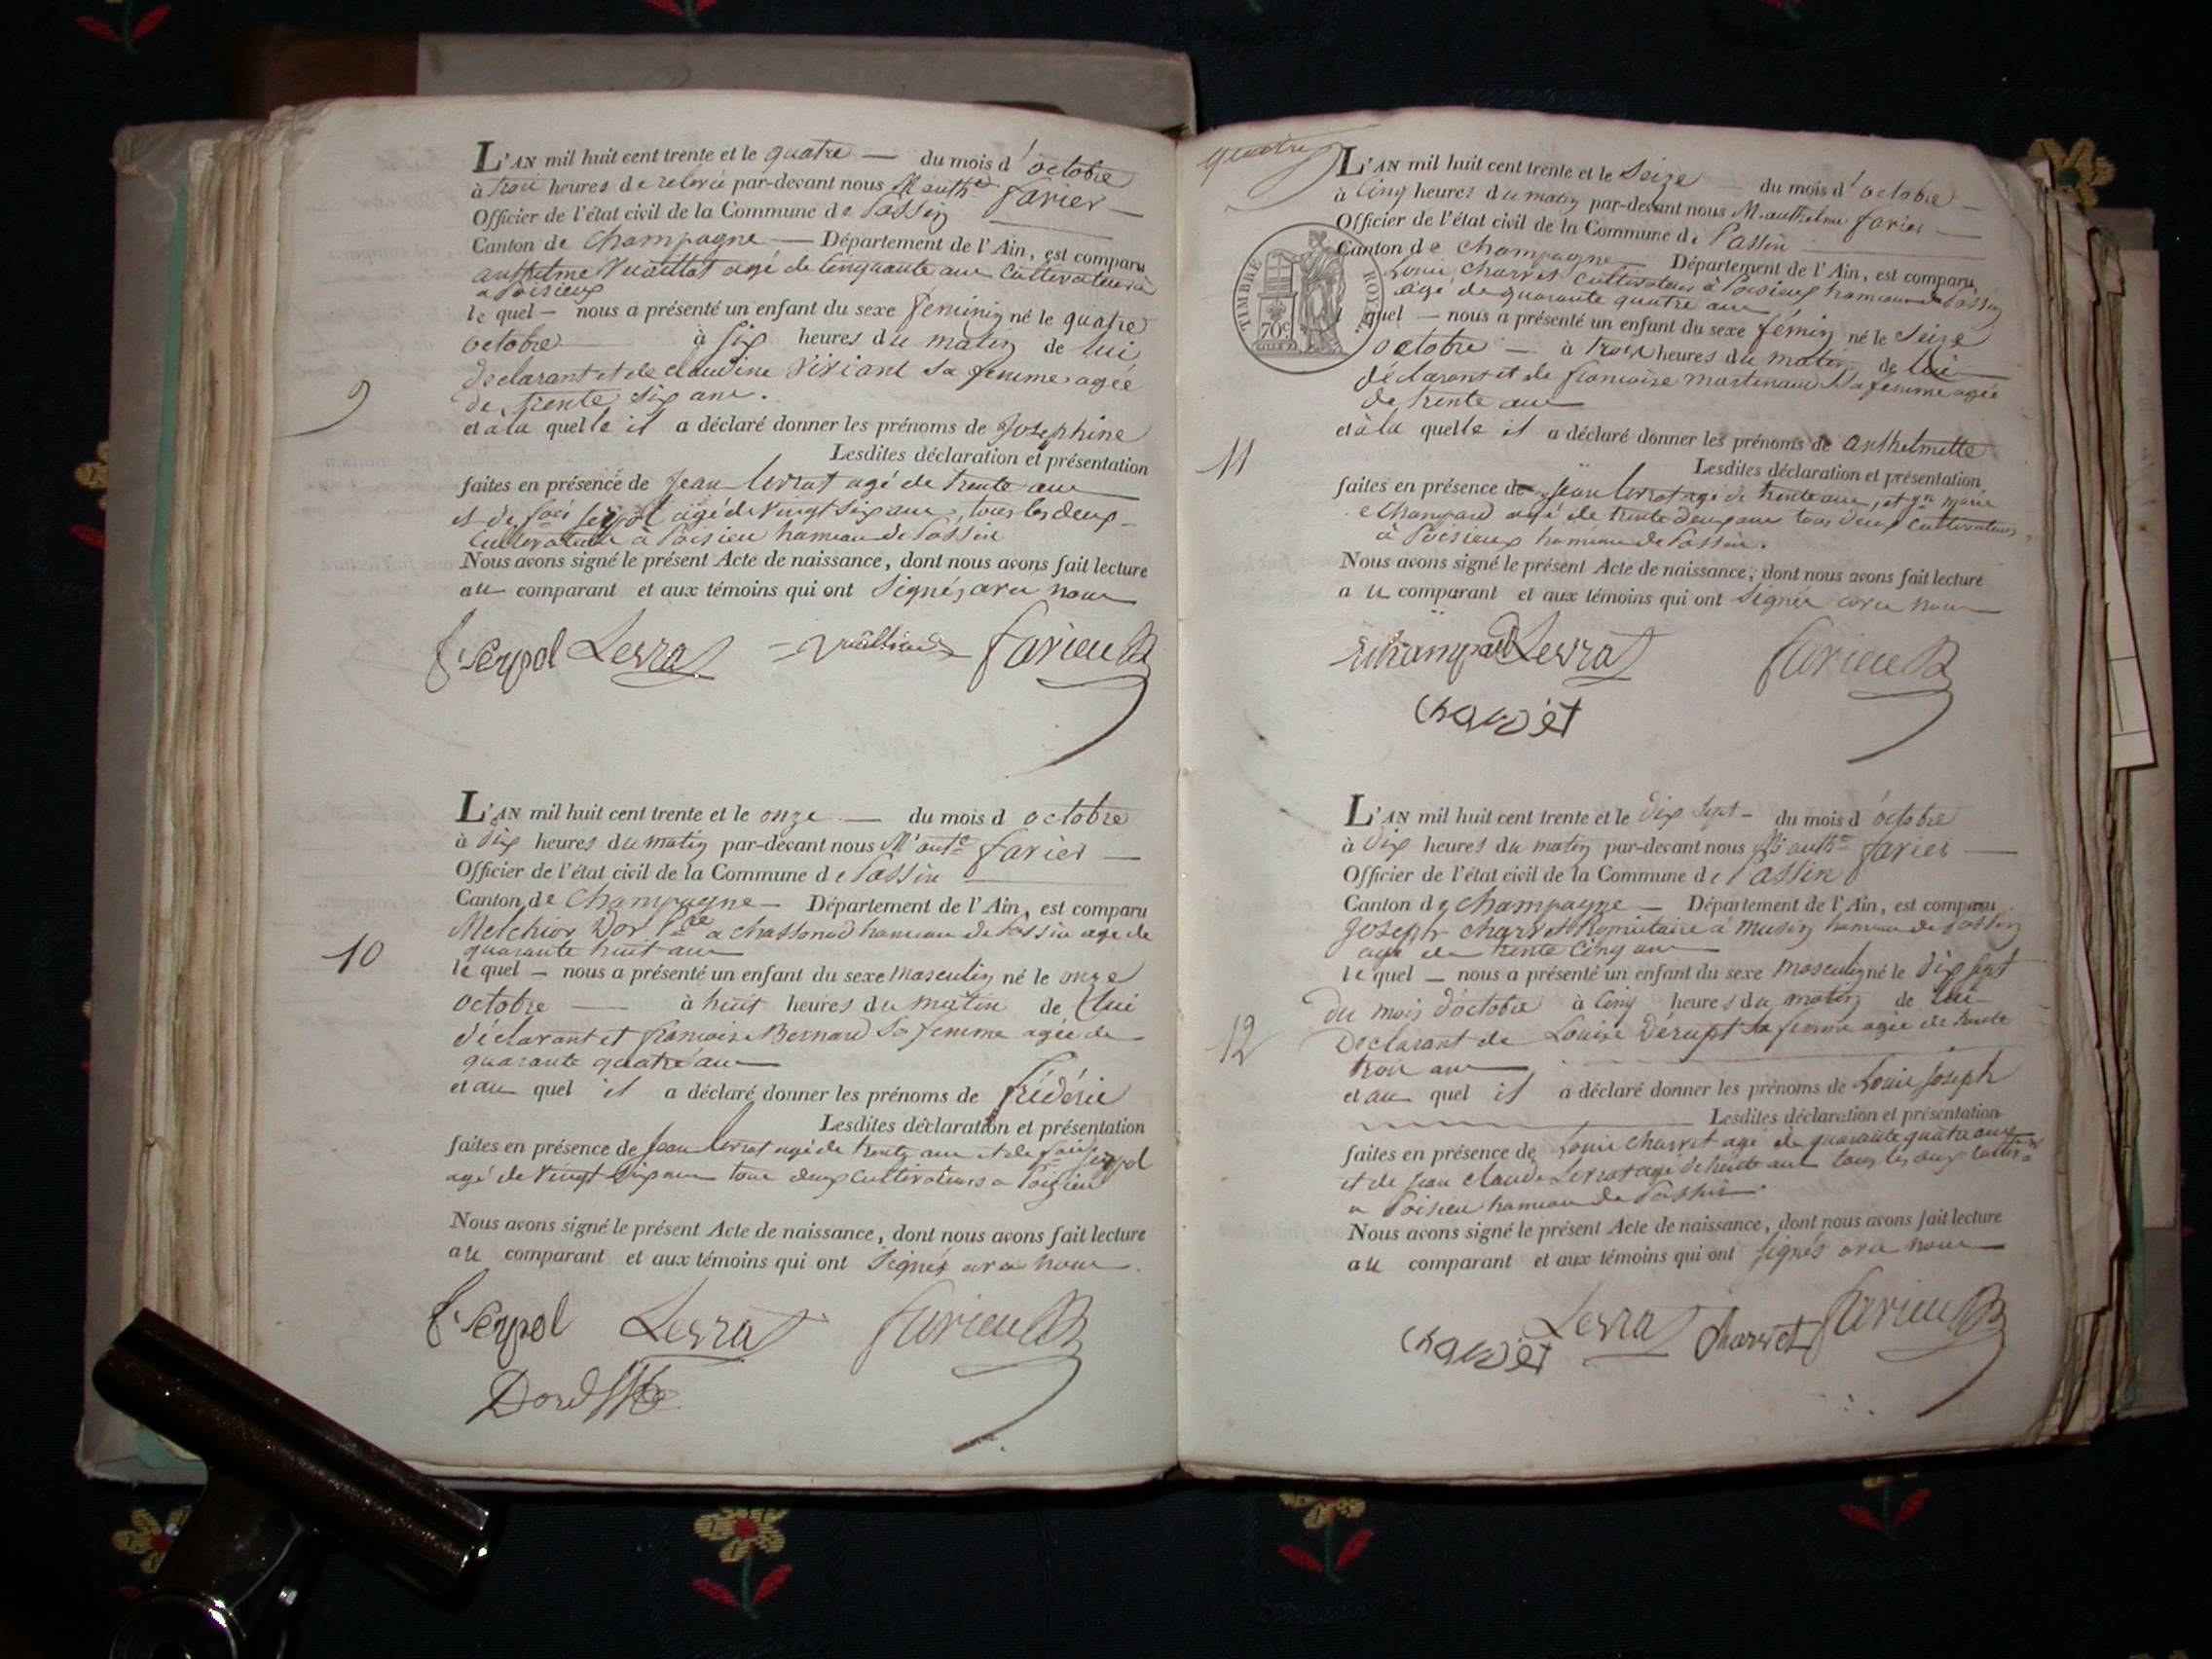 L'AN mil huit cent trente et le quatre — du mois d'octobre
à trois heures de relevée par-devant nous M. anth.e favier —
Officier de l'état civil de la Commune de Passin
Canton de Champagne — Département de l'Ain, est comparu
anthelme Vuaillat agé de cinquante ans cultivateur
a Poisieux
le quel — nous a présenté un enfant du sexe feminin né le quatre
octobre à six heures du matin de lui
declarant et de claudine Viviant sa femme agée
de trente six ans.
9
et à la quelle il a déclaré donner les prénoms de Josephine
Lesdites déclaration et présentation
faites en présence de Jean levrat agé de trente ans
et de f.ois serpol agé de vingt six ans, tous les deux
cultivateurs à Poisieu hameau de Passin
Nous avons signé le présent Acte de naissance, dont nous avons fait lecture
au comparant et aux témoins qui ont signés avec nous
f. serpol Levrat favier
L'AN mil huit cent trente et le onze — du mois d octobre
à dix heures du matin par-devant nous M. ant.e favier —
Officier de l'état civil de la Commune de Passin
Canton de Champagne — Département de l'Ain, est comparu
Melchior Dor P.re a chassonod hameau de Passin agé de
10
quarante huit ans
le quel — nous a présenté un enfant du sexe masculin né le onze
octobre — à huit heures du matin de lui
déclarant et francoise Bernard sa femme agée de
quarante quatre ans
et au quel il a déclaré donner les prénoms de frédéric
Lesdites déclaration et présentation
faites en présence de Jean levrat agé de trente ans et de f.ois serpol
agé de vingt six ans tous deux cultivateurs a Poisieu
Nous avons signé le présent Acte de naissance, dont nous avons fait lecture
au comparant et aux témoins qui ont signés avec nous
f. serpol Levrat favier
Dord
quatre
L'AN mil huit cent trente et le seize du mois d'octobre —
à cinq heures du matin par-devant nous M. anthelme favier —
Officier de l'état civil de la Commune de Passin
Canton de Champagne Département de l'Ain, est comparu
Louis charvet cultivateur à Poisieux hameau de Passin
agé de quarante quatre ans
TIMBRE ROYAL
70c
le quel — nous a présenté un enfant du sexe fémin né le seize
octobre — à trois heures du matin de lui
déclarant et de francoise martinand sa femme agée
de trente ans
et à la quelle il a déclaré donner les prénoms de anthelmette
11
Lesdites déclaration et présentation
faites en présence de jean levrat agé de trente ans, et marie
agé de trente deux ans tous deux cultivateurs
à Poisieux hameau de Passin.
Nous avons signé le présent Acte de naissance, dont nous avons fait lecture
a u comparant et aux témoins qui ont signés avec nous
Levrat favier
charvet
L'AN mil huit cent trente et le dix sept — du mois d'octobre
à dix heures du matin par-devant nous M. anth.e favier —
Officier de l'état civil de la Commune de Passin
Canton de Champagne — Département de l'Ain, est comparu
Joseph charvet Propriétaire à Musin hameau de Passin
agé de trente cinq ans
le quel — nous a présenté un enfant du sexe masculin né le dix sept
du mois d'octobre à cinq heures du matin de lui
12
Declarant de Louise Dérupt sa femme agée de trente
trois ans
et au quel il a déclaré donner les prénoms de Louis joseph
Lesdites déclaration et présentation
faites en présence de Louis charvet agé de quarante quatre ans
et de jean claude Levrat agé de trente ans tous les deux
a Poisieu hameau de Passin.
Nous avons signé le présent Acte de naissance, dont nous avons fait lecture
au comparant et aux témoins qui ont signés avec nous
charvet Levrat charvet favier